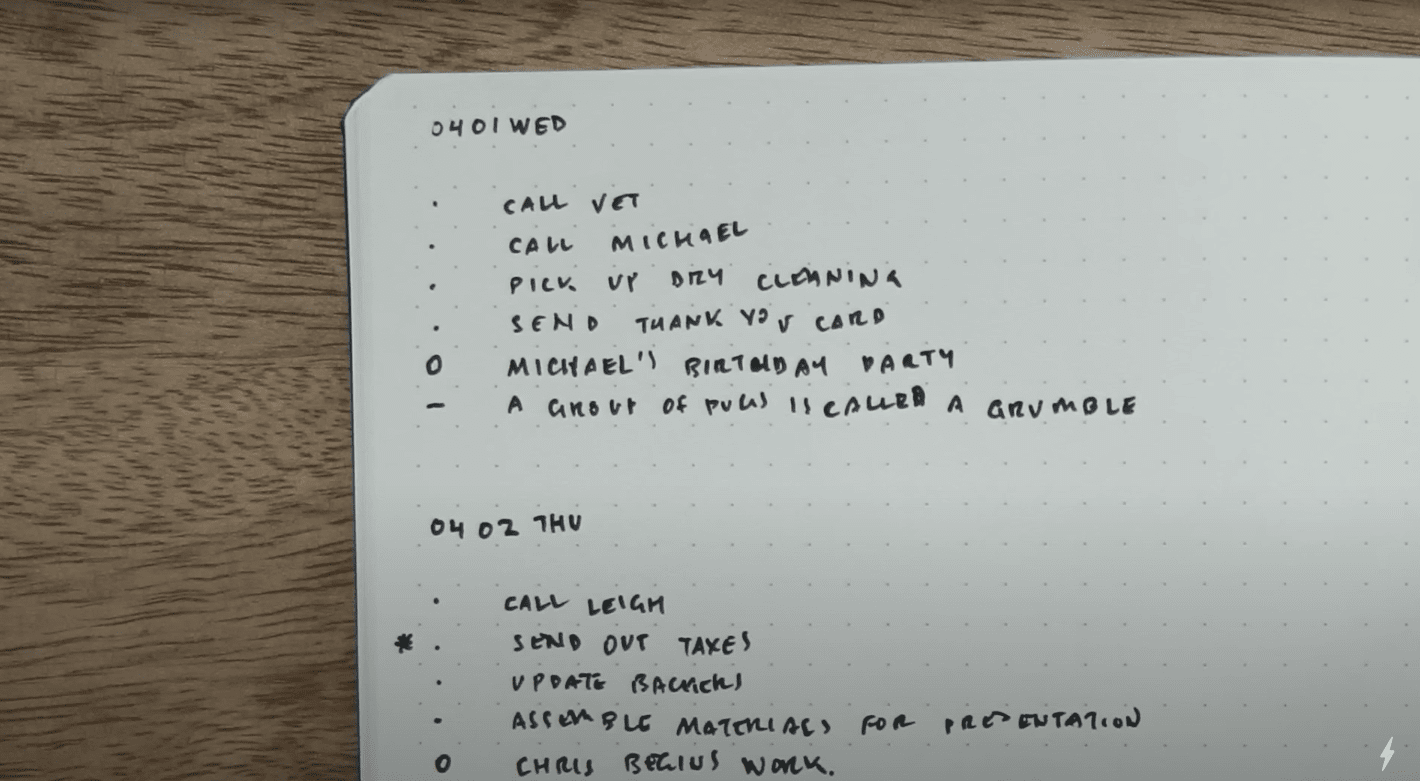 0401 WED
· CALL VET
· CALL MICHAEL
· PICK UP DRY CLEANING
· SEND THANK YOU CARD
O MICHAEL'S BIRTHDAY PARTY
– A GROUP OF PUGS IS CALLED A GRUMBLE
0402 THU
· CALL LEIGH
* · SEND OUT TAXES
· UPDATE BACKERS
· ASSEMBLE MATERIALS FOR PRESENTATION
O CHRIS BEGINS WORK.